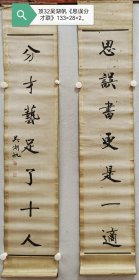 顶32吴湖帆《思误分
才联》133×28×2。
思误書更是一適
分才藝足了十人
吴湖帆